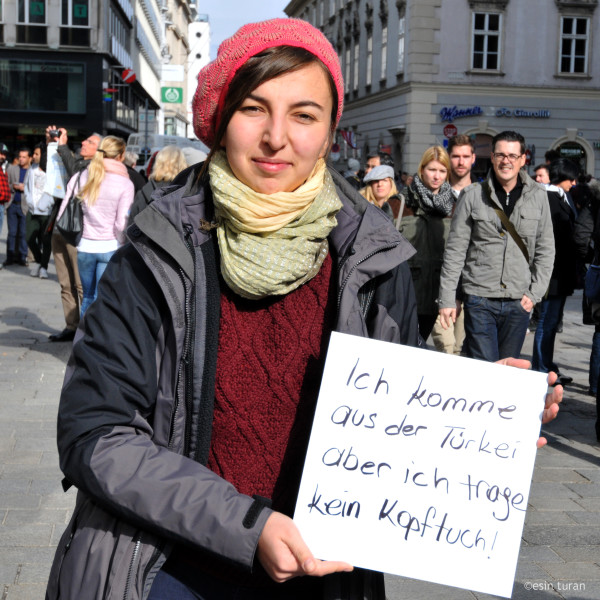 Ich komme
aus der Türkei
aber ich trage
kein Kopftuch!
©esin turan